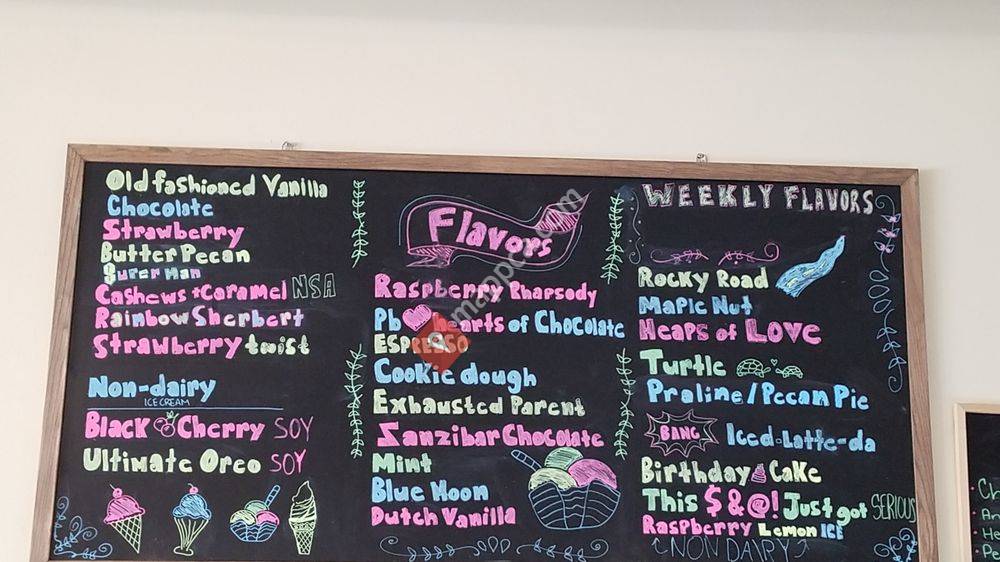 Old fashioned Vanilla
Chocolate
Strawberry
Butter Pecan
Superman
Cashews + Caramel NSA
Rainbow Sherbert
Strawberry twist
Non-dairy
ICE CREAM
Black Cherry SOY
Ultimate Oreo SOY
Flavors
Raspberry Rhapsody
Pb hearts of Chocolate
ESPRESSO
Cookie dough
Exhausted Parent
Zanzibar Chocolate
Mint
Blue Moon
Dutch Vanilla
WEEKLY FLAVORS
Rocky Road
Maple Nut
Heaps of LOVE
Turtle
Praline/Pecan Pie
BANG Iced-Latte-da
Birthday Cake
This $&@! Just got SERIOUS
Raspberry Lemon ICE
NON DAIRY